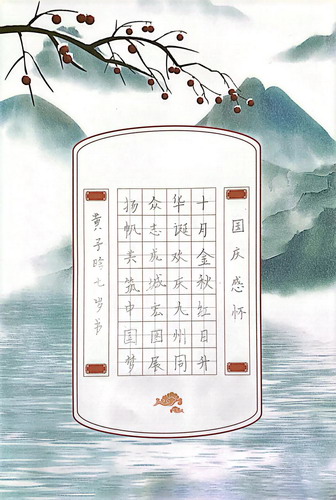 国庆感怀
十月金秋红日升
华诞欢庆九州同
众志成城宏图展
扬帆共筑中国梦
黄子七岁书